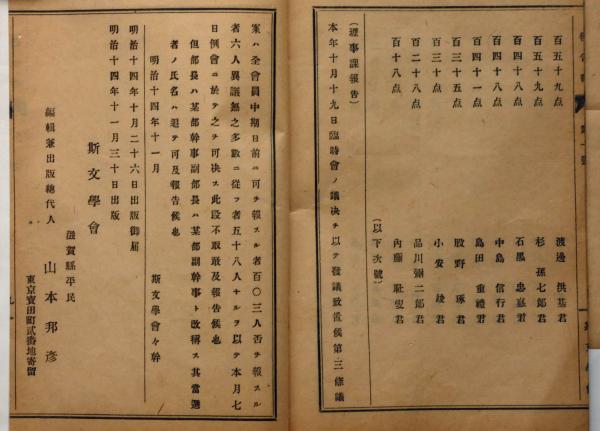 百五十九点 渡邊 洪基君
百五十九点 杉 孫七郎君
百四十八点 石黒 忠悳君
百四十八点 中島 信行君
百四十一点 島田 重禮君
百三十五点 股野 琢君
百三十点 小安 綾君
百二十八点 品川彌二郎君
百十八点 内藤 耻叟君
(以下次號)
(理事課報告)
本年十月十九日臨時會ノ議决ヲ以テ發議致置候第三條議
案ハ全會員中期日前ニ可ヲ報スル者百〇三人否ヲ報スル
者六人異議無之多數ニ從フ者五十八人ナルヲ以テ本月七
日例會ニ於テ之ヲ可决ス此段不取敢及報告候也
但部長ハ某部幹事副部長ハ某部副幹事ト改稱ス其當選
者ノ氏名ハ追テ可及報告候也
明治十四年十一月 斯文學會々幹
明治十四年十月二十六日出版御届
明治十四年十一月三十日出版
斯文學會
編輯兼出版總代人
滋賀縣平民
山本邦彦
東京寳田町貳番地寄留